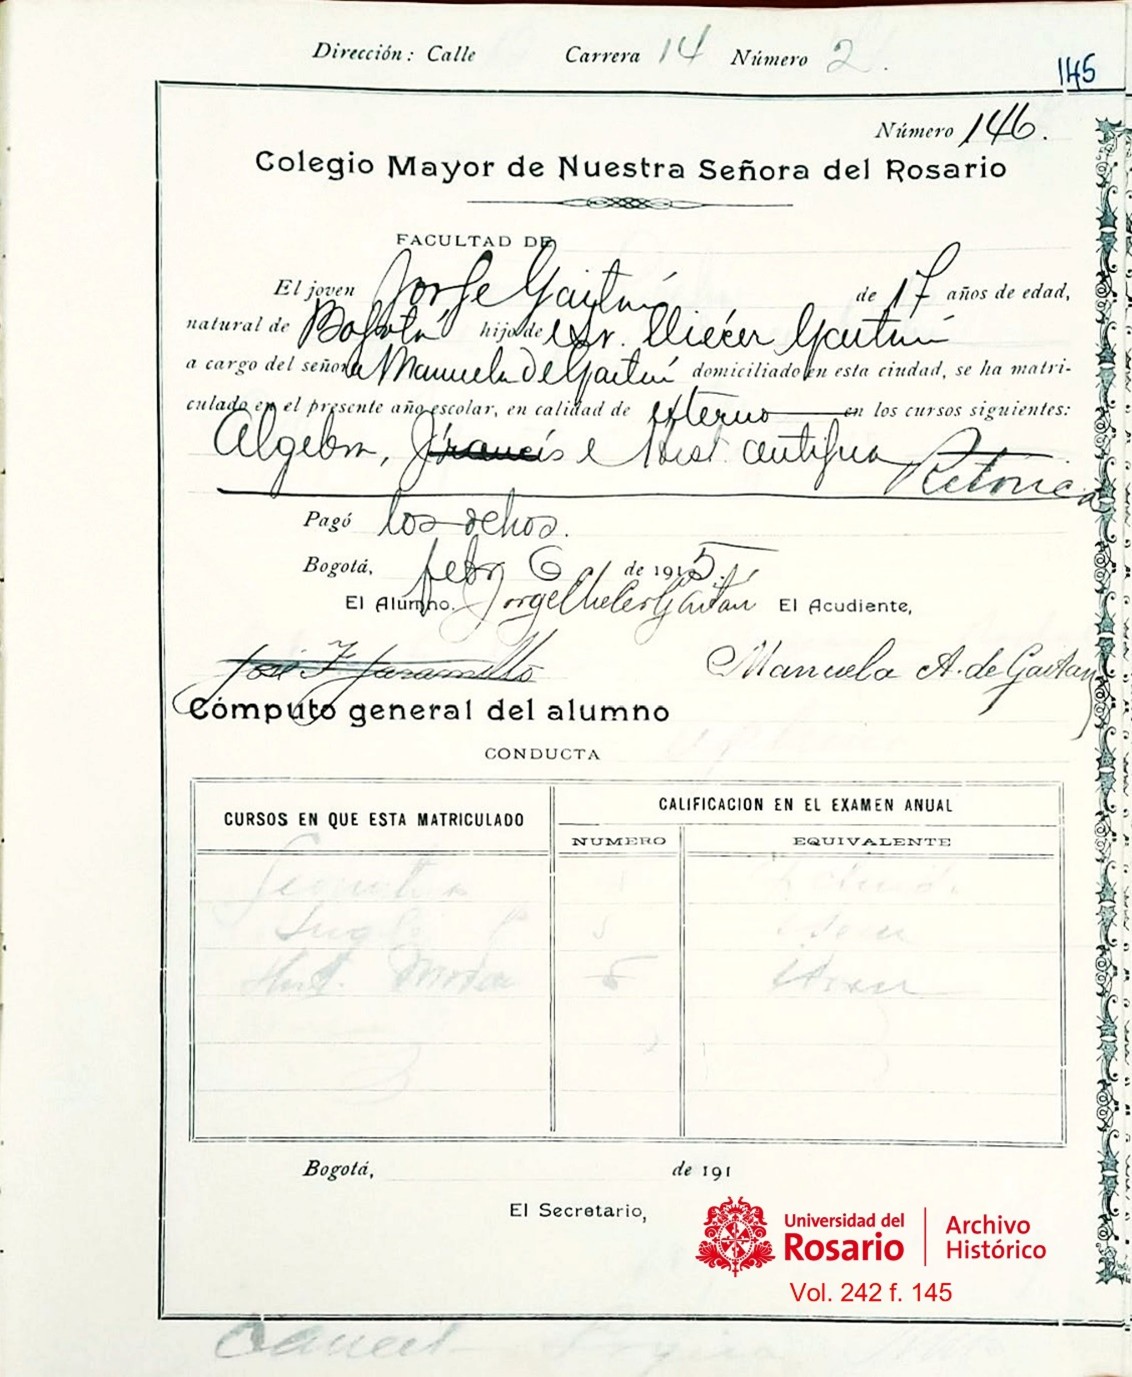 Dirección: Calle Carrera 14 Número 2.
145
Número 146.
Colegio Mayor de Nuestra Señora del Rosario
FACULTAD DE
El joven Jorge Gaitán de 17 años de edad,
natural de Bogotá hijo de Sr. Eliécer Gaitán
a cargo del señor la Manuela de Gaitán domiciliado en esta ciudad, se ha matri-
culado en el presente año escolar, en calidad de externo en los cursos siguientes:
Algebra, Francés e Hist. antigua Retórica
Pagó los ochos.
Bogotá, febr 6 de 1915.
El Alumno, Jorge Eliecer Gaitán El Acudiente,
José F Jaramillo Manuela A. de Gaitan
Cómputo general del alumno
CONDUCTA
CURSOS EN QUE ESTA MATRICULADO
CALIFICACION EN EL EXAMEN ANUAL
NUMERO EQUIVALENTE
Hist. 5
Bogotá, de 191
El Secretario,
Universidad del Rosario
Archivo Histórico
Vol. 242 f. 145